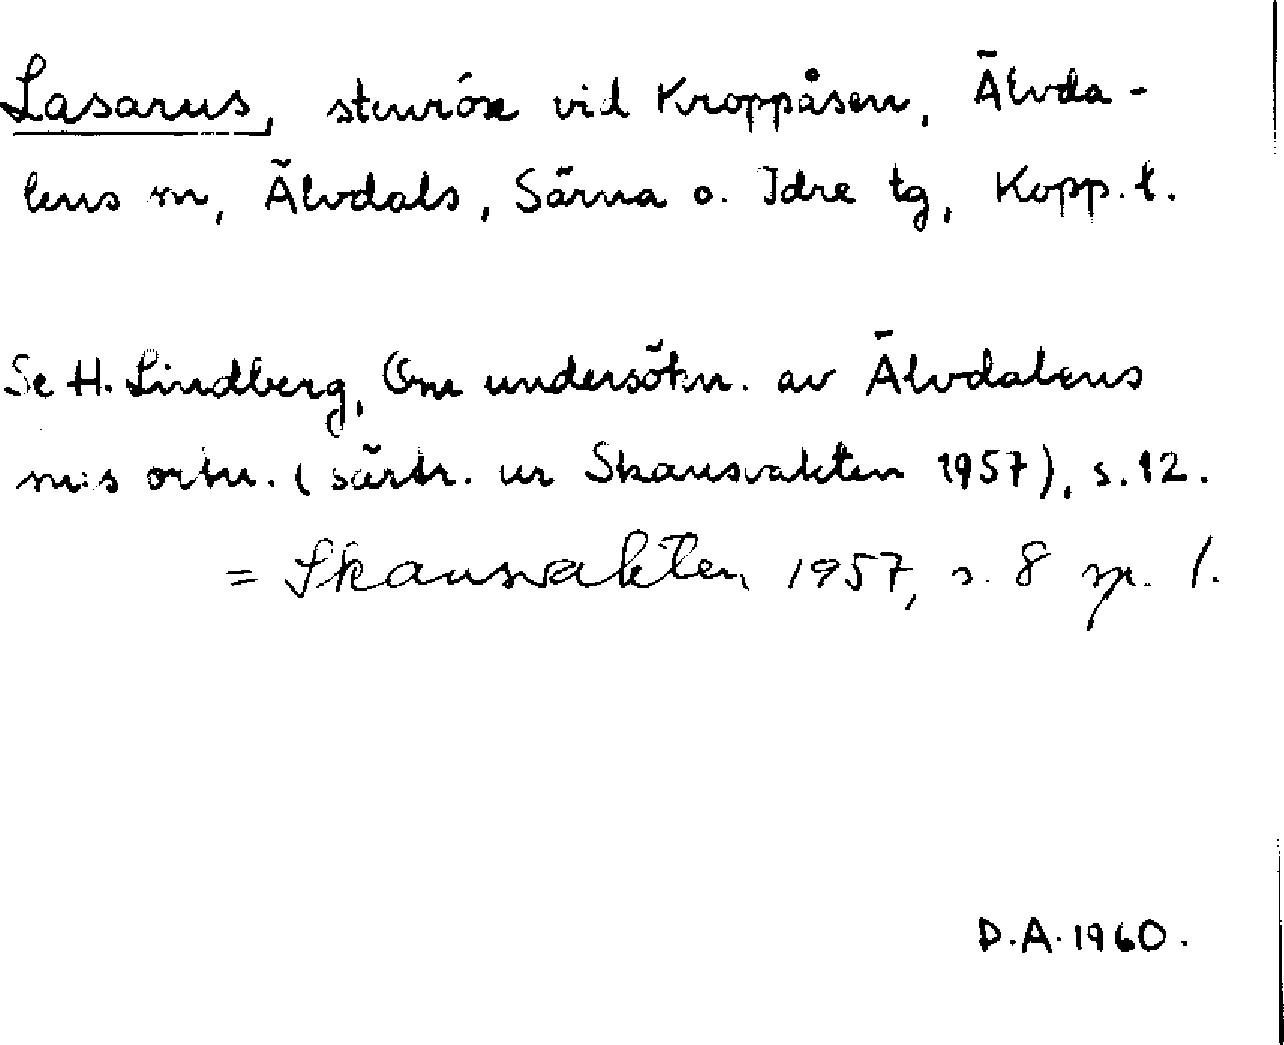 Lasarus, stenröse vid Kroppåsen, Älvda-
lens sn, Älvdals, Särna o. Idre tg, Kopp. l.
Se H. Lindberg, Om undersökn. av Älvdalens
sn:s ortn. (särtr. ur Skansvakten 1957), s. 12.
= Skansvakten 1957, s. 8 sp. 1.
D.A. 1960.